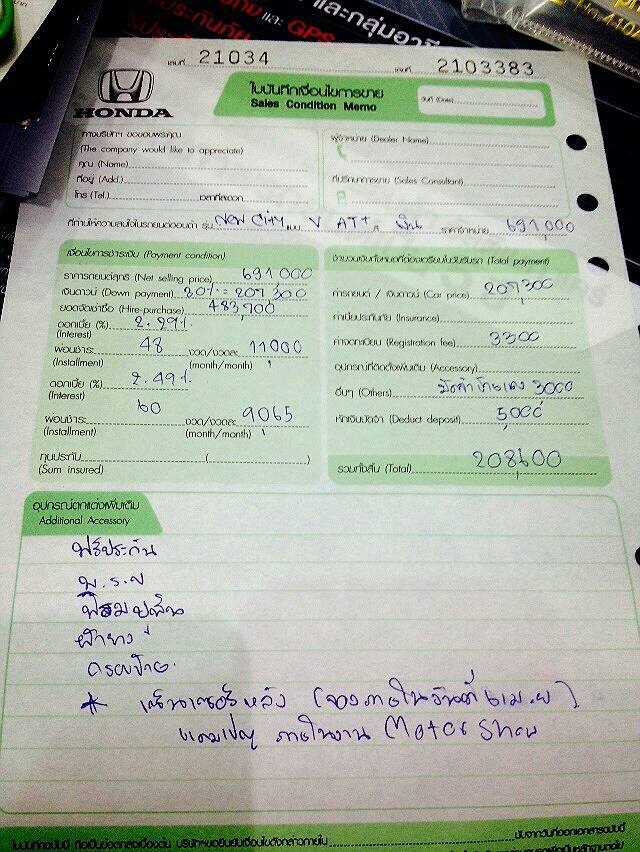 และกลุ่มอา
และ GPS
เลขที่ 21034 เลขที่ 2103383
HONDA
ใบบันทึกเงื่อนไขการขาย
Sales Condition Memo
วันที่ (Date)
ทางบริษัทฯ ขอขอบพระคุณ
(The company would like to appreciate)
คุณ (Name)
ที่อยู่ (Add.)
โทร (Tel.) เวลาที่สะดวก
ผู้จำหน่าย (Dealer Name)
ที่ปรึกษาการขาย (Sales Consultant)
ที่ท่านให้ความสนใจในรถยนต์ฮอนด้า รุ่น NEW CITY แบบ V AT+ สี เงิน ราคาจำหน่าย 691,000
เงื่อนไขการชำระเงิน (Payment condition)
ราคารถยนต์สุทธิ (Net selling price) 691,000
เงินดาวน์ (Down payment) 30% = 207,300
ยอดจัดเช่าซื้อ (Hire-purchase) 483,700
ดอกเบี้ย (%) 2.29%
(Interest)
ผ่อนชำระ 48 งวด/งวดละ 11000
(Installment) (month/month)
ดอกเบี้ย (%) 2.49%
(Interest)
60
ผ่อนชำระ งวด/งวดละ 9065
(Installment) (month/month)
ทุนประกัน ( )
(Sum insured)
จำนวนเงินทั้งหมดที่ต้องเตรียมในวันรับรถ (Total payment)
ค่ารถยนต์ / เงินดาวน์ (Car price) 207,300
ค่าเบี้ยประกันภัย (Insurance)
ค่าจดทะเบียน (Registration fee) 3300
อุปกรณ์ที่ติดตั้งเพิ่มเติม (Accessory)
อื่นๆ (Others) มัดจำป้ายแดง 3000
หักเงินมัดจำ (Deduct deposit) 5,000
รวมทั้งสิ้น (Total) 208,600
อุปกรณ์ตกแต่งเพิ่มเติม
Additional Accessory
ฟรีประกัน
พ.ร.บ
ฟิล์ม
ผ้ายาง
กรอบป้าย
* เซ็นเซอร์หลัง (จองภายในวันที่ 6 เม.ย)
แคมเปญ ภายในงาน Motor Show
ใบบันทึกฉบับนี้ ถือเป็นข้อตกลงเบื้องต้น บริษัทฯขอยืนยันเงื่อนไขดังกล่าวภายใน นับจากวันที่ออกเอกสารฉบับนี้